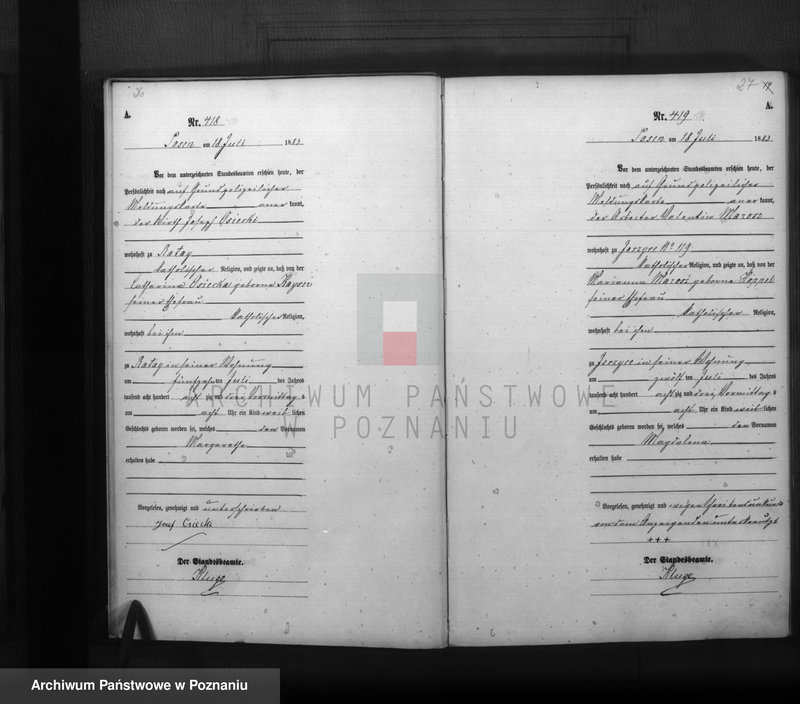 26
A.
Nr. 418
Posen am 18 Juli 1883
Vor dem unterzeichneten Standesbeamten erschien heute, der
Persönlichkeit nach auf Grund polizeilicher
Meldungskarte aner kannt,
der Wirth Joseph Osiecki
wohnhaft zu Ratay
katholischer Religion, und zeigte an, daß von der
Catharina Osiecka geborene
seiner Ehefrau
katholischer Religion,
wohnhaft bei ihm
zu Ratay in seiner Wohnung
am fünfzehnten Juli des Jahres
tausend acht hundert acht zig und drei Vormittags
um acht Uhr ein Kind weib lichen
Geschlechts geboren worden sei, welches den Vornamen
Margarethe
erhalten habe
Vorgelesen, genehmigt und unterschrieben
Josef Osiecki
Der Standesbeamte.
Kluge
27
A.
Nr. 419
Posen am 18 Juli 1883
Vor dem unterzeichneten Standesbeamten erschien heute, der
Persönlichkeit nach auf Grund polizeilicher
Meldungskarte aner kannt,
der Arbeiter Valentin Marosz
wohnhaft zu Jerzyce No 119
katholischer Religion, und zeigte an, daß von der
Marianna Marosz geborene
seiner Ehefrau
katholischer Religion,
wohnhaft bei ihm
zu Jerzyce in seiner Wohnung
am zwölf ten Juli des Jahres
tausend acht hundert acht zig und drei Vormittags
um acht Uhr ein Kind weib lichen
Geschlechts geboren worden sei, welches den Vornamen
Magdalena
erhalten habe
Vorgelesen, genehmigt und wegen Schreibensunkunde
von dem Anzeigenden unterkreuzt
+++
Der Standesbeamte.
Kluge
ARCHIWUM PAŃSTWOWE
W POZNANIU
Archiwum Państwowe w Poznaniu